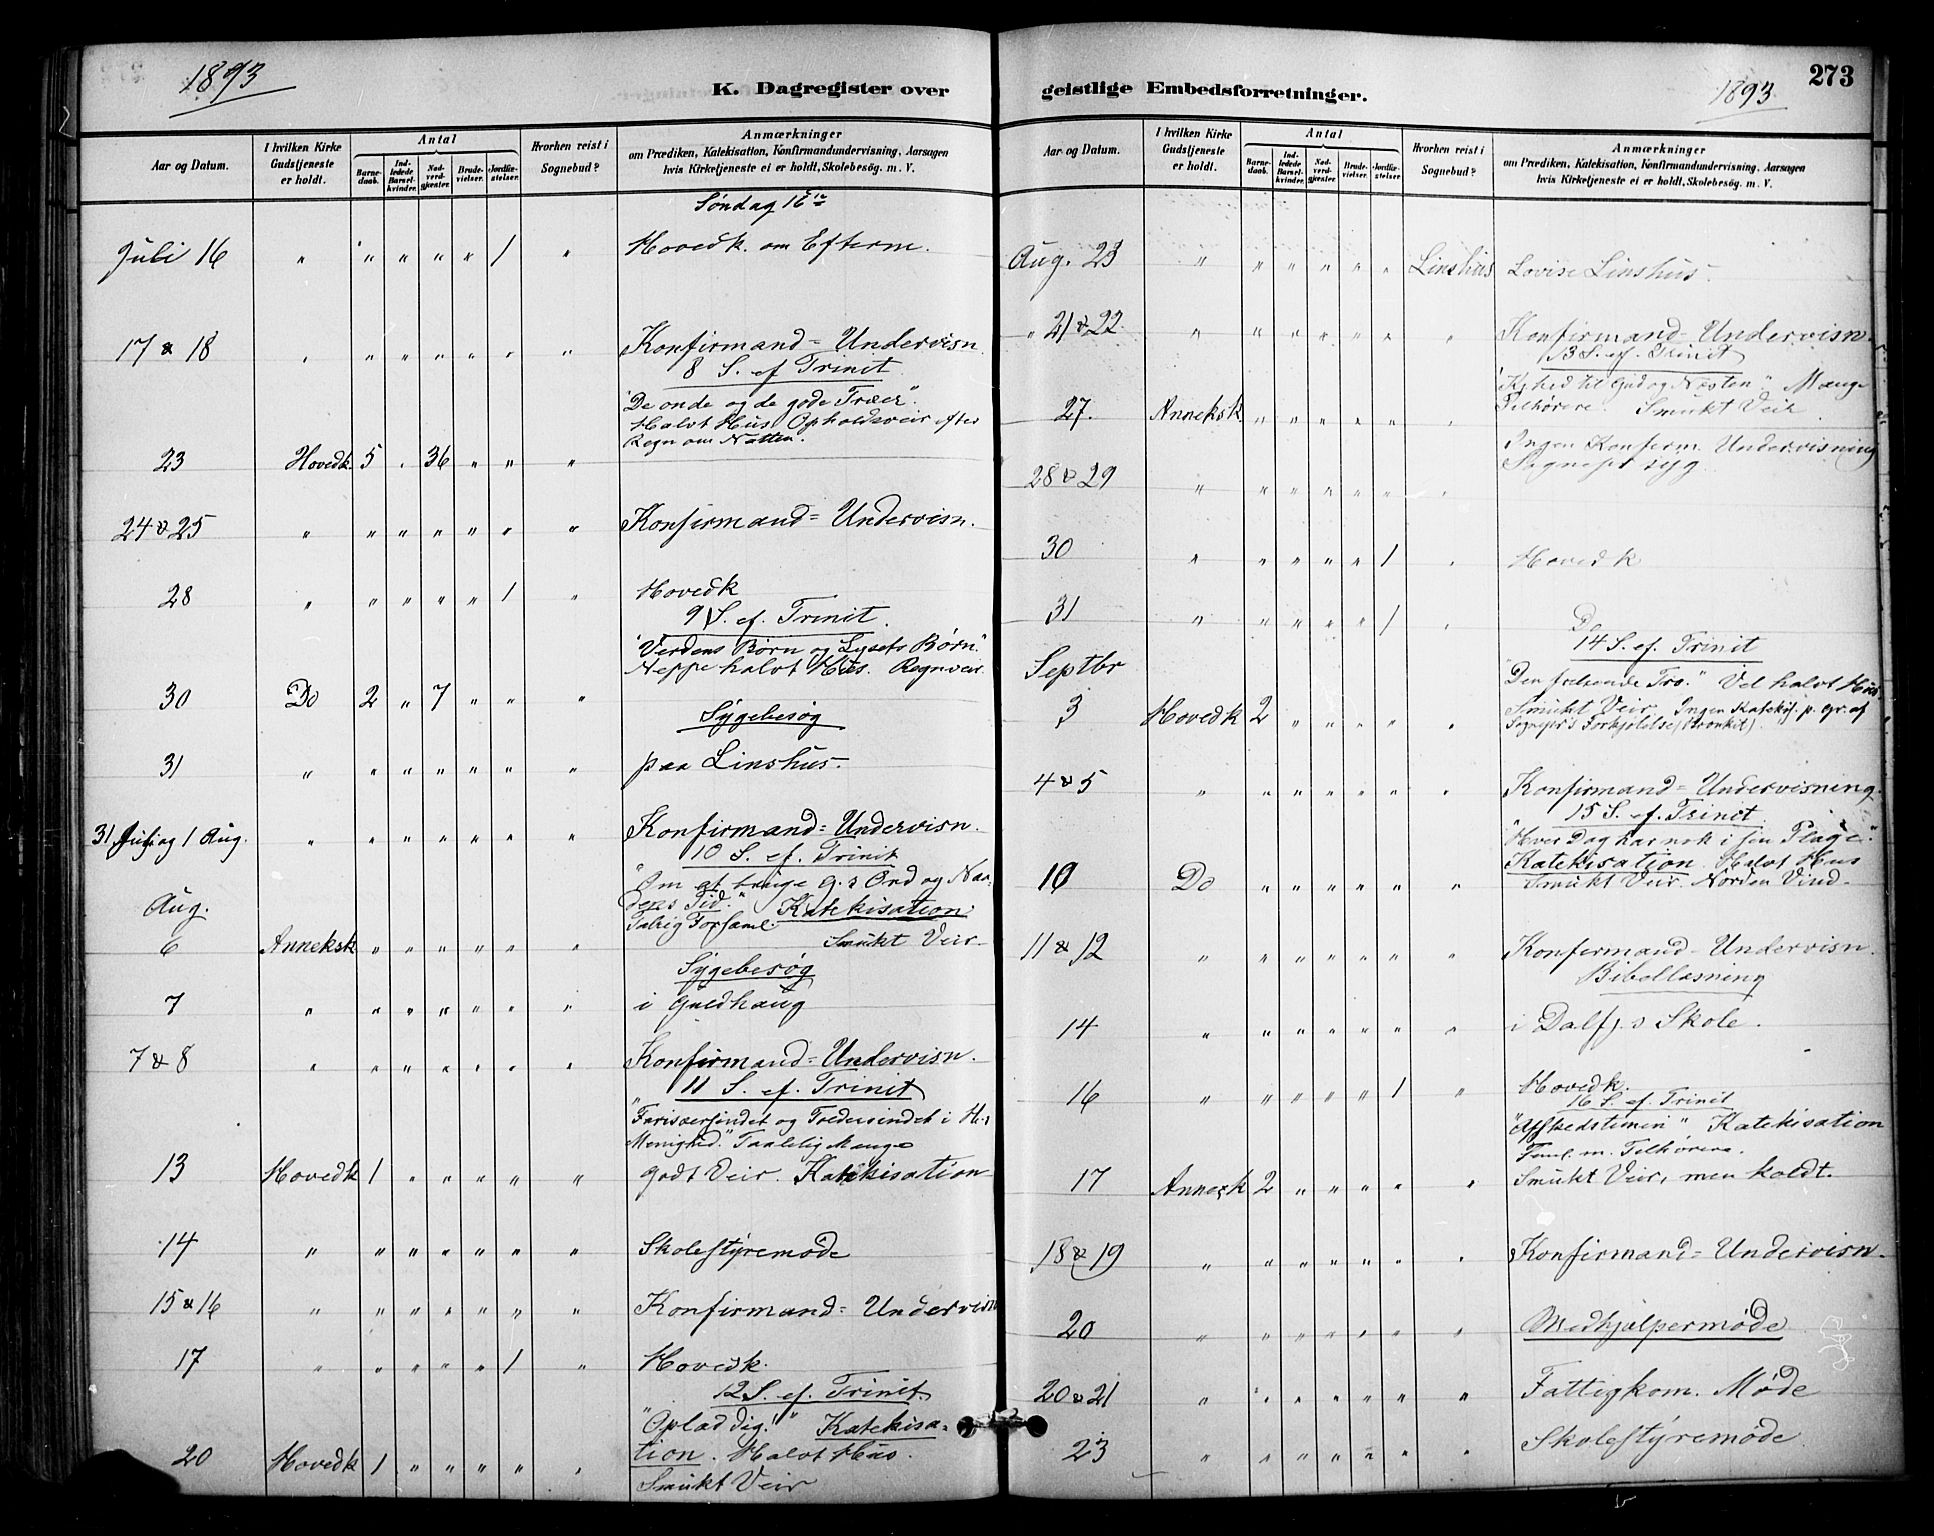 1893
K. Dagregister over
Aar og Datum.
I hvilken Kirke Gudstjeneste er holdt.
Antal
Barne-daab.
Ind-ledede Barsel-kvinder.
Nad-verd-gjester.
Brude-vielser.
Jordfæ-stelser.
Hvorhen reist i Sognebud?
Anmærkninger
om Prædiken, Katekisation, Konfirmandundervisning, Aarsagen
hvis Kirketjeneste ei er holdt, Skolebesøg. m. V.
Søndag 16de
Juli 16 " " " " " 1 " Hovedk. om Efterm.
17 & 18 " " " " " " " Konfirmand=Undervisn.
8 S. ef Trinit
"De onde og de gode Træer".
Halvt Hus Opholdsveir efter
Regn om Natten.
23 Hovedk. 5 " 36 " " "
24 & 25 " " " " " " " Konfirmand=Undervisn.
28 " " " " " 1 " Hovedk
9 S. ef. Trinit.
"Verdens Børn og Lysets Børn."
Neppe halvt Hus. Regnveir.
30 Do 2 " 7 " " "
Sygebesøg
31 " " " " " " " paa Linshus.
31 Juli og 1 Aug. " " " " " " " Konfirmand=Undervisn.
10 S. ef. Trinit
"Om at bruge G.s Ord og Naa-
dens Tid." Katekisation.
Talrig Forsaml.
Aug.
6 Anneksk " " " " " " Smukt Veir
Sygebesøg
7 " " " " " " " i Guldhaug
7 & 8 " " " " " " " Konfirmand=Undervisn.
11 S. ef. Trinit
"Farisæersindet og Toldersindet i H.s
Menighed." Taalelig Mange
13 Hovedk 1 " " " " " godt Veir. Katekisation
14 " " " " " " " Skolestyremøde
15 & 16 " " " " " " " Konfirmand=Undervisn
17 " " " " " 1 " Hovedk.
12 S. ef. Trinit.
"Oplad dig!" Katekisa-
20 Hovedk 1 " " " " " tion. Halvt Hus.
Smukt Veir
1893
273
geistlige Embedsforretninger.
Aar og Datum.
I hvilken Kirke Gudstjeneste er holdt.
Antal
Barne-daab.
Ind-ledede Barsel-kvinder.
Nad-verd-gjester.
Brude-vielser.
Jordfæ-stelser.
Hvorhen reist i Sognebud?
Anmærkninger
om Prædiken, Katekisation, Konfirmandundervisning, Aarsagen
hvis Kirketjeneste ei er holdt, Skolebesøg. m. V.
Aug. 23 " " " " " " Linshus Lovise Linshus.
" 21 & 22. " " " " " " " Konfirmand=Undervisn.
13 S. ef. Trinit
"Kjhed til Gud og Næsten." Mange
27. Anneksk " " " " " " Tilhørere. Smukt Veir
Ingen Konfirm. Undervisning
28 & 29 " " " " " " " Sognepr syg
30 " " " " " 1 " Hovedk
31 " " " " " 1 " Do
14 S. ef. Trinit
Septbr
"Den frelsende Tro." Vel halvt Hus
3 Hovedk 2 " " " " " Smukt Veir. Ingen Katekis. p. gr. af
Sognepr's Forkjølelse (Bronkit).
4 & 5 " " " " " " " Konfirmand=Undervisning.
15 S. ef. Trinit
"Hver Dag har nok i sin Plage."
Katekisation. Halvt Hus
10 Do " " " " " " Smukt Veir. Norden Vind.
11 & 12 " " " " " " " Konfirmand=Undervisn.
Bibellæsning
14 " " " " " " " i Dalfj.s Skole.
16 " " " " " 1 " Hovedk.
16 S. ef. Trinit
"Afskedstimen" Katekisation
Tilhørere.
17 Annexk 2 " " " " " Smukt Veir, men koldt.
18 & 19 " " " " " " " Konfirmand=Undervisn.
20 " " " " " " " Medhjælpermøde
20 & 21 " " " " " " " Fattigkom. Møde
23 " " " " " " " Skolestyremøde